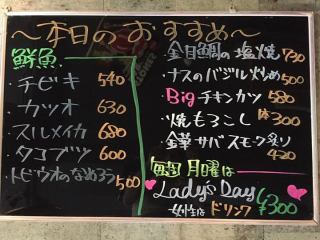 〜本日のおすすめ〜
鮮魚
・チビキ 540
・カツオ 630
・スルメイカ 680
・タコブツ 600
・トビウオのなめろう 500
金目鯛の塩焼 730
・ナスのバジル炒め 500
・Bigチキンカツ 580
・焼もろこし ¥300
・金華サバスモーク炙り 420
毎週月曜は
Lady's Day
女性全 ドリンク ¥300